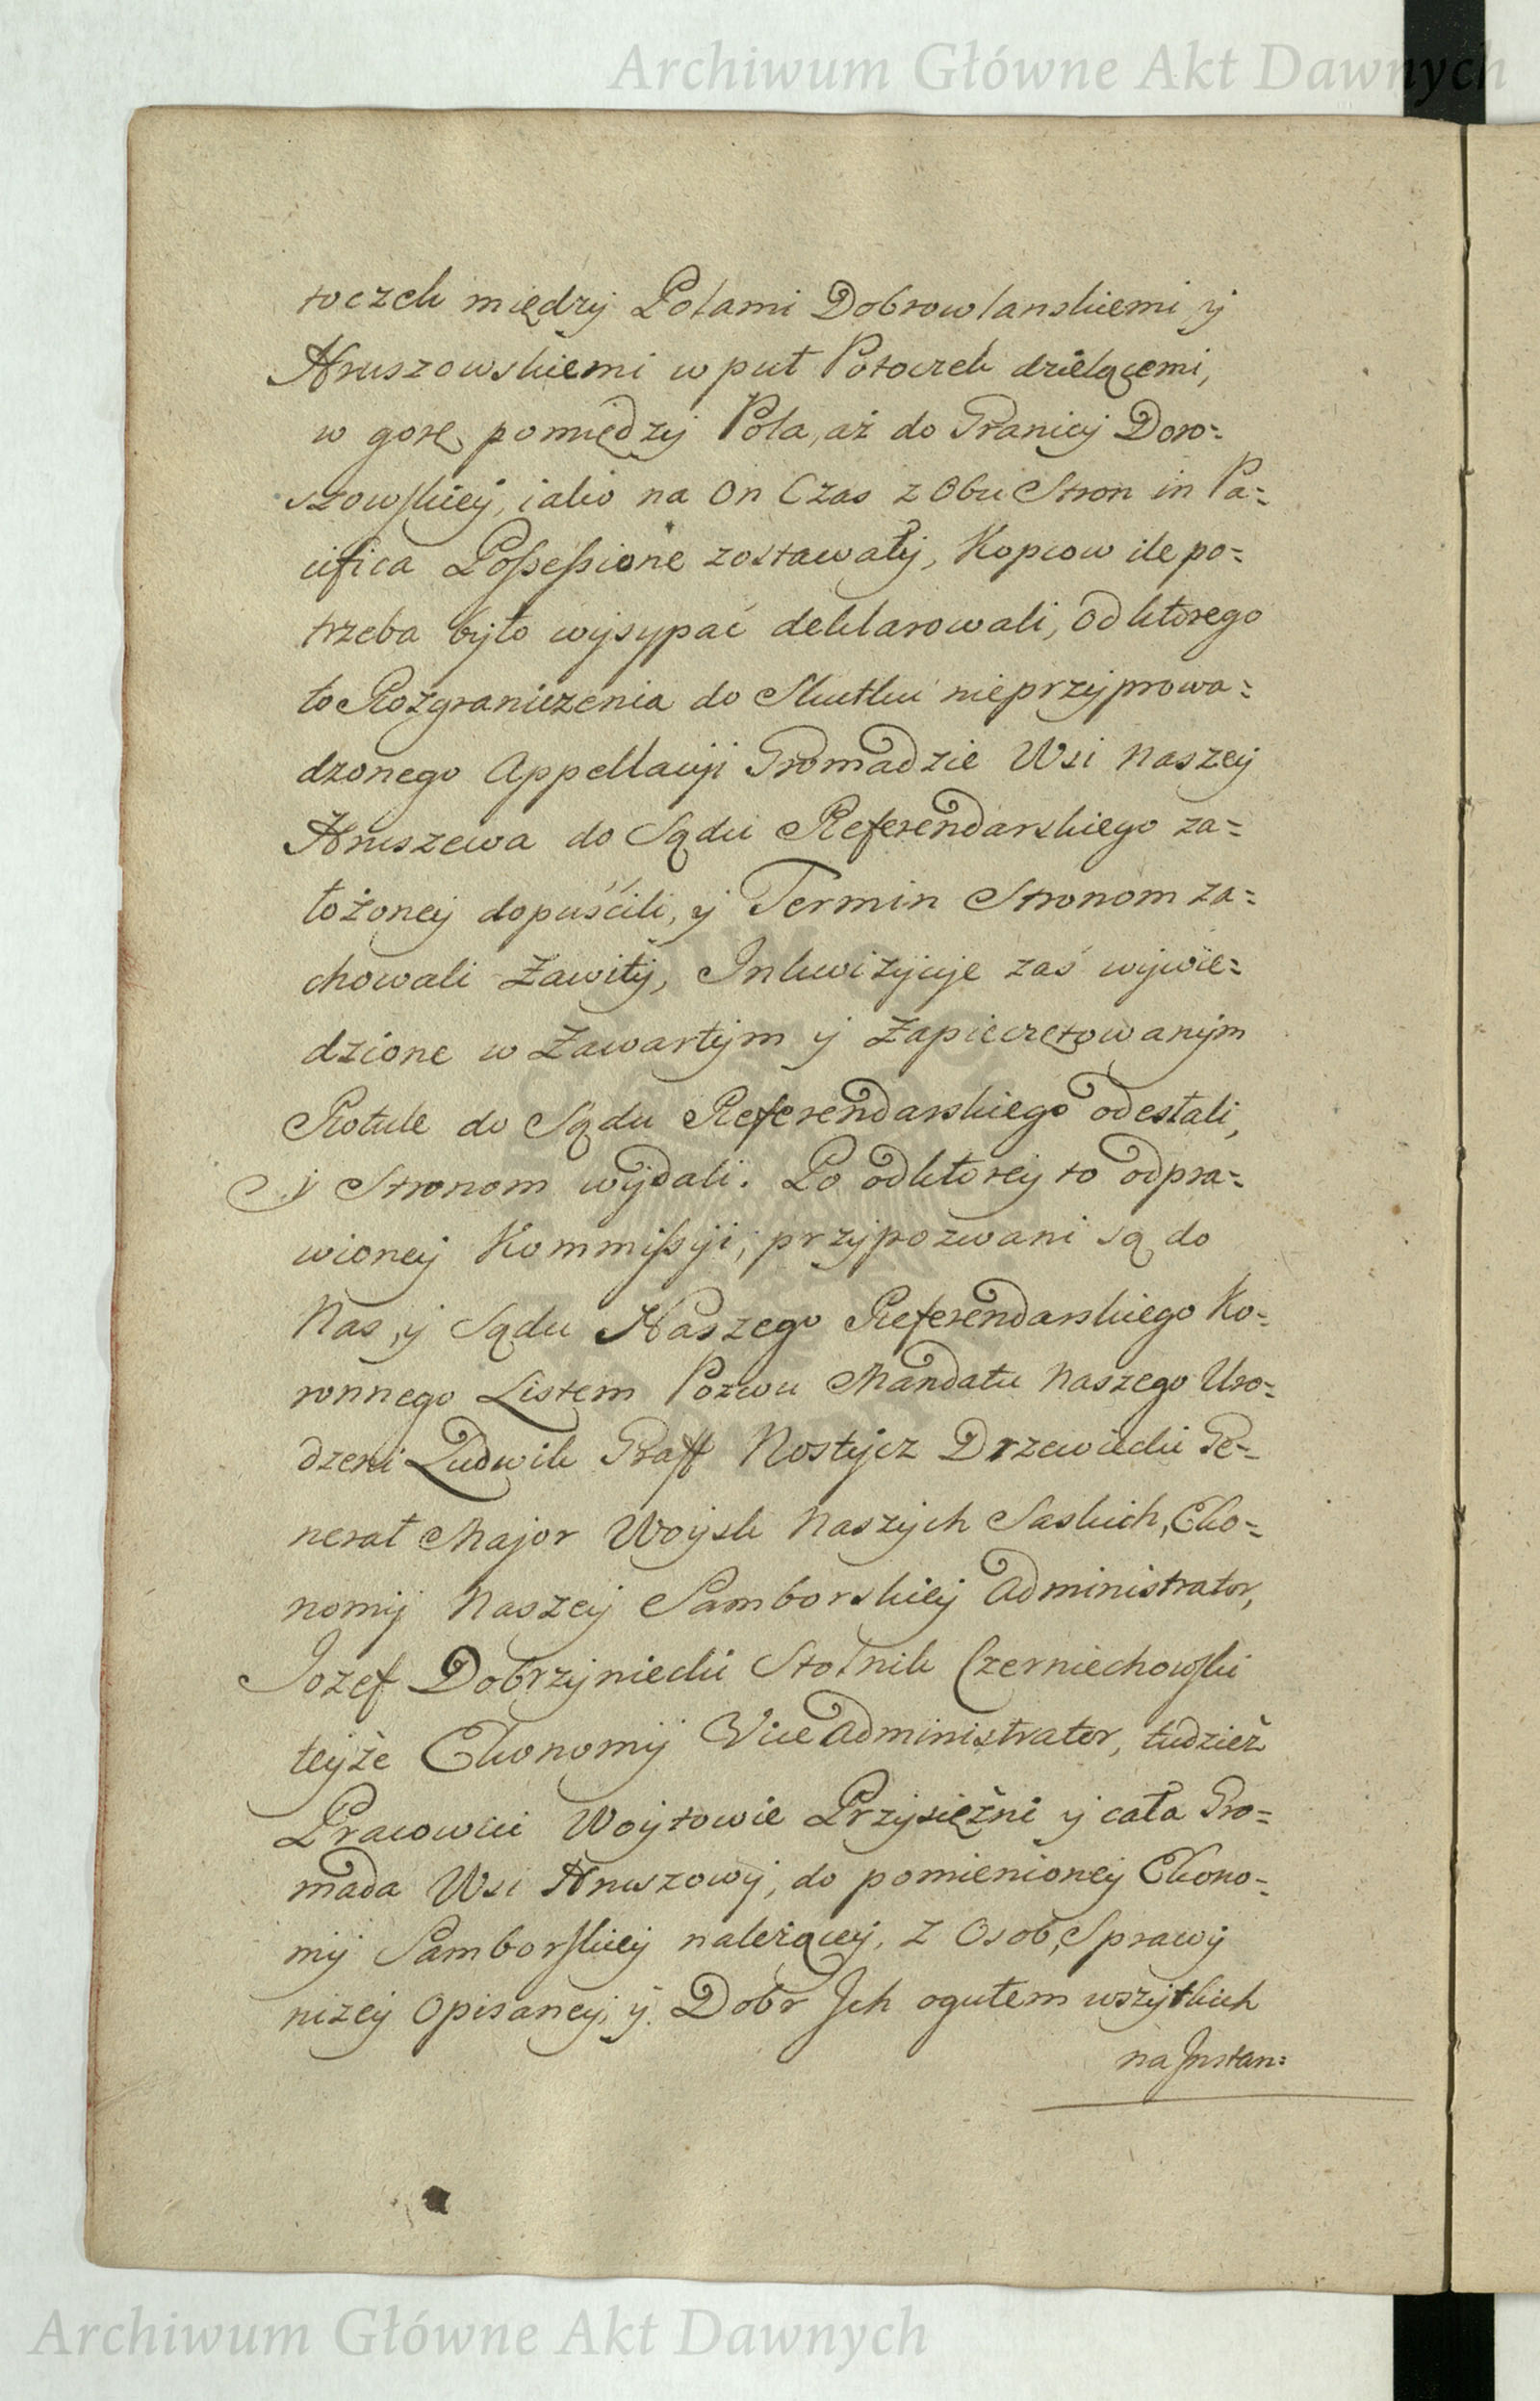 Archiwum Główne Akt Dawnych
toczek między Polami Dobrowlanskiemi y
Hruszowskiemi w puł Potoczek dzielącemi,
w gorę pomiędzy Pola, aż do Granicy Doro=
szowskiey, iako na On Czas z Obu Stron in Pa=
cifica Possessione zostawały, Kopcow ile po=
trzeba było wysypać deklarowali, od ktorego
to Rozgraniczenia do Skutku nieprzyprowa=
dzonego Appellacyi Gromadzie Wsi Naszey
Hruszewa do Sądu Referendarskiego za=
łożoney dopuścili, y Termin Stronom za=
chowali Zawity, Inkwizycye zaś wywie=
dzione w Zawartym y Zapieczętowanym
Rotule do Sądu Referendarskiego odesłali,
y Stronom wydali. Po odktorey to odpra=
wioney Kommissyi, przypozwani są do
Nas, y Sądu Naszego Referendarskiego Ko=
ronnego Listem Pozwu Mandatu Naszego Uro=
dzeni Ludwik Graff Nostycz Drzewiecki Ge=
nerał Major Woysk Naszych Saskich, Eko=
nomij Naszey Samborskiey Administrator,
Jozef Dobrzyniecki Stolnik Czerniechowski
teyże Ekonomij Vice Administrator, tudzież
Pracowici Woytowie Przysiężni y cała Gro=
mada Wsi Hruszowy, do pomienioney Ekono=
mij Samborskiey należącey, z Osob, Sprawy
niżey Opisaney, y Dobr Jch ogułem wszytkich
na Jnstan:
Archiwum Główne Akt Dawnych